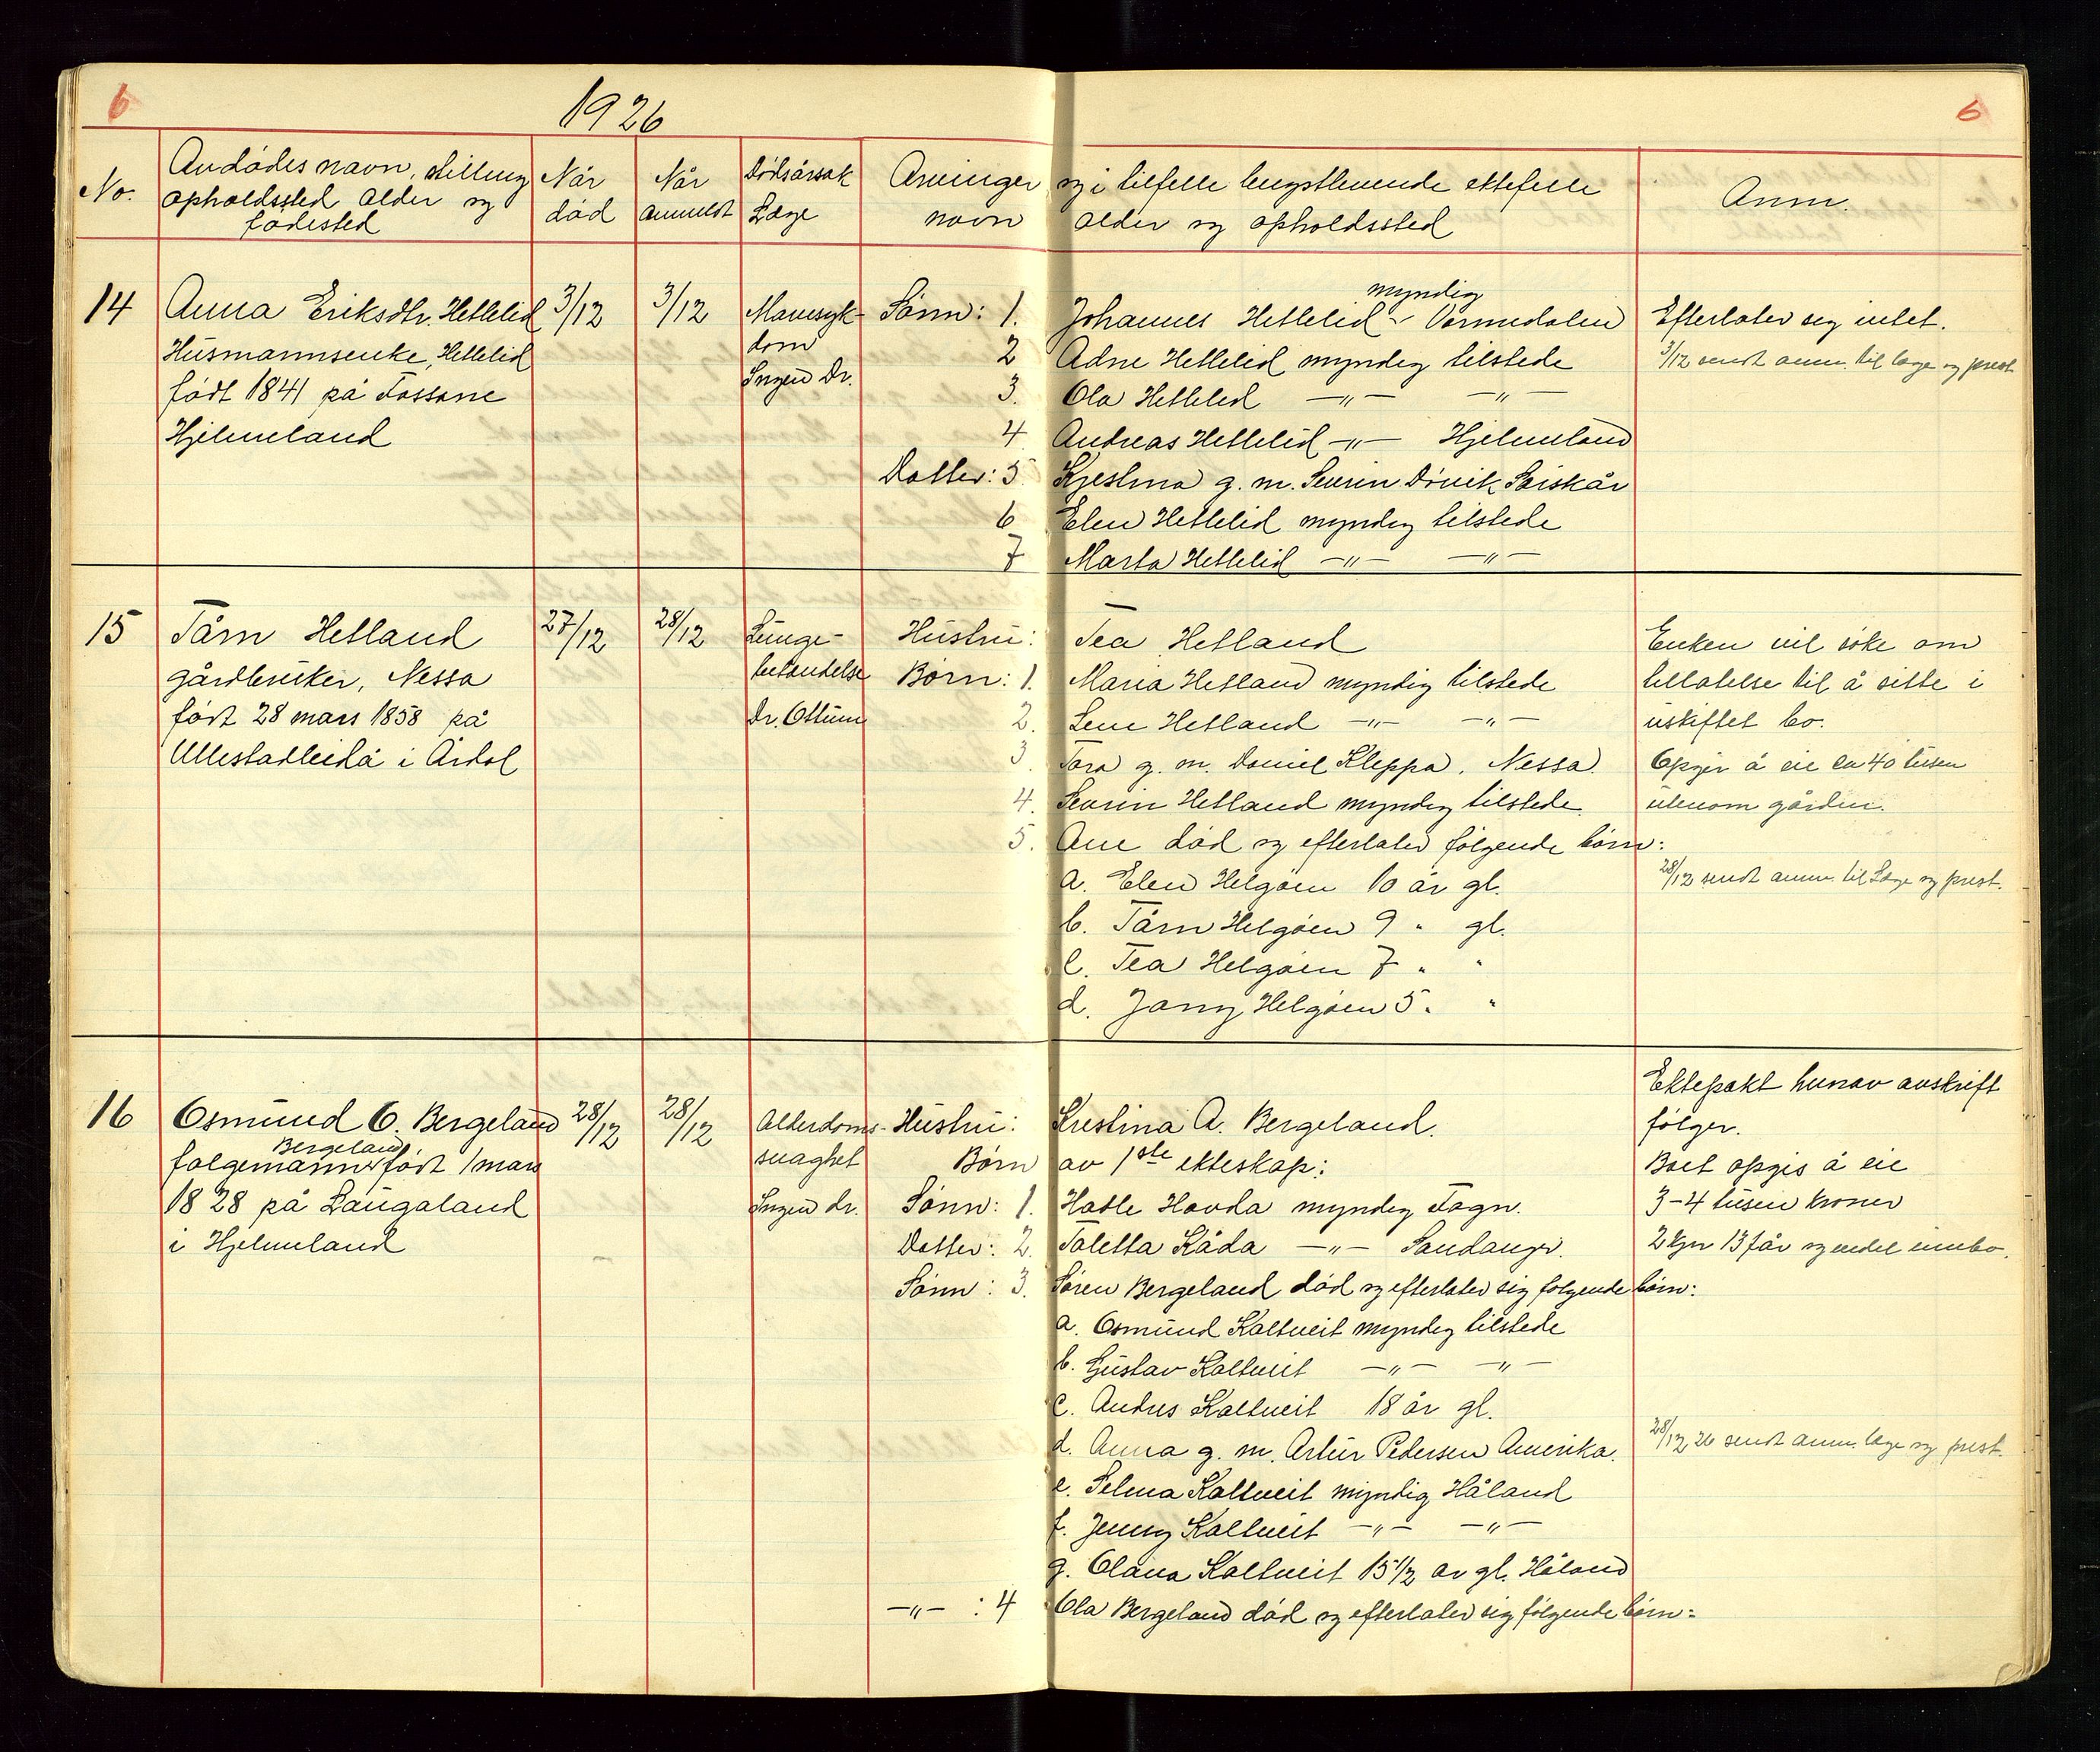 6
1926
6
No.
Avdødes navn, stilling
opholdssted alder og
fødested
Når
død
Når
anmeldt
Dødsårsak
Læge
Arvinger og i tilfelle lengstlevende ektefelle
navn alder og opholdssted
Anm.
14
Anna Eriksdtr. Hettelid
Husmannsenke, Hettelid
født 1841 på Fossane
Hjelmeland
3/12
3/12
Mavesyk-
dom
Ingen Dr.
myndig
Sønn: 1. Johannes Hettelid Vormedalen
2 Adne Hettelid myndig tilstede
3. Ola Hettelid —„— —„—
4 Andreas Hettelid —„— Hjelmeland
Datter: 5 Kjestina g. m. Sevrin Døvik
6 Elen Hettelid myndig tilstede
7 Marta Hettelid —„— —„—
Efterlater seg intet.
3/12 sendt anm. til læge og prest
15
Tårn Hetland
gårdbruker, Nessa
født 28 mars 1858 på
Ullestadleidå i Årdal
27/12
28/12
Lunge-
betendelse
Dr. Ottum
Hustru: Tea Hetland
Børn: 1. Maria Hetland myndig tilstede
2. Lene Hetland —„— —„—
3. Tora g. m. Daniel Kleppa, Nessa.
4. Sevrin Hetland myndig tilstede.
5. Ane død og efterlater følgende børn:
a. Elen Helgøen 10 år gl.
b. Tårn Helgøen 9 " gl.
c. Tea Helgøen 7 " "
d. Jany Helgøen 5 " "
Enken vil søke om
tillatelse til å sitte i
uskiftet bo.
Opgir å eie ca 40 tusen
utenom gården.
28/12 sendt anm. til Læge og prest.
16
Osmund O. Bergeland
Bergeland
folgemann født 1 mars
1828 på Laugaland
i Hjelmeland
28/12
28/12
Alderdoms-
svaghet
Ingen dr.
Hustru: Krestina A. Bergeland.
Børn av 1ste ekteskap:
Sønn: 1. Hatle Havda myndig Fogn.
Datter: 2. Taletta Kåda —„— Sandanger.
Sønn: 3. Søren Bergeland død og efterlater sig følgende børn:
a. Osmund Kaltveit myndig tilstede
b. Gustav Kaltveit —„— —„—
c. Andres Kaltveit 18 år gl.
d. Anna g. m. Artur Pedersen Amerika.
e. Selma Kaltveit myndig Håland
f. Jenny Kaltveit —„— —„—
g. Olava Kaltveit 15 1/2 år gl. Håland
—„— : 4 Ola Bergeland død og efterlater sig følgende børn:
Ektepakt hvorav avskrift
følger.
Boet opgis å eie
3-4 tusen kroner
2 kjør 13 får og endel innbo.
28/12 26 sendt anm. læge og prest.